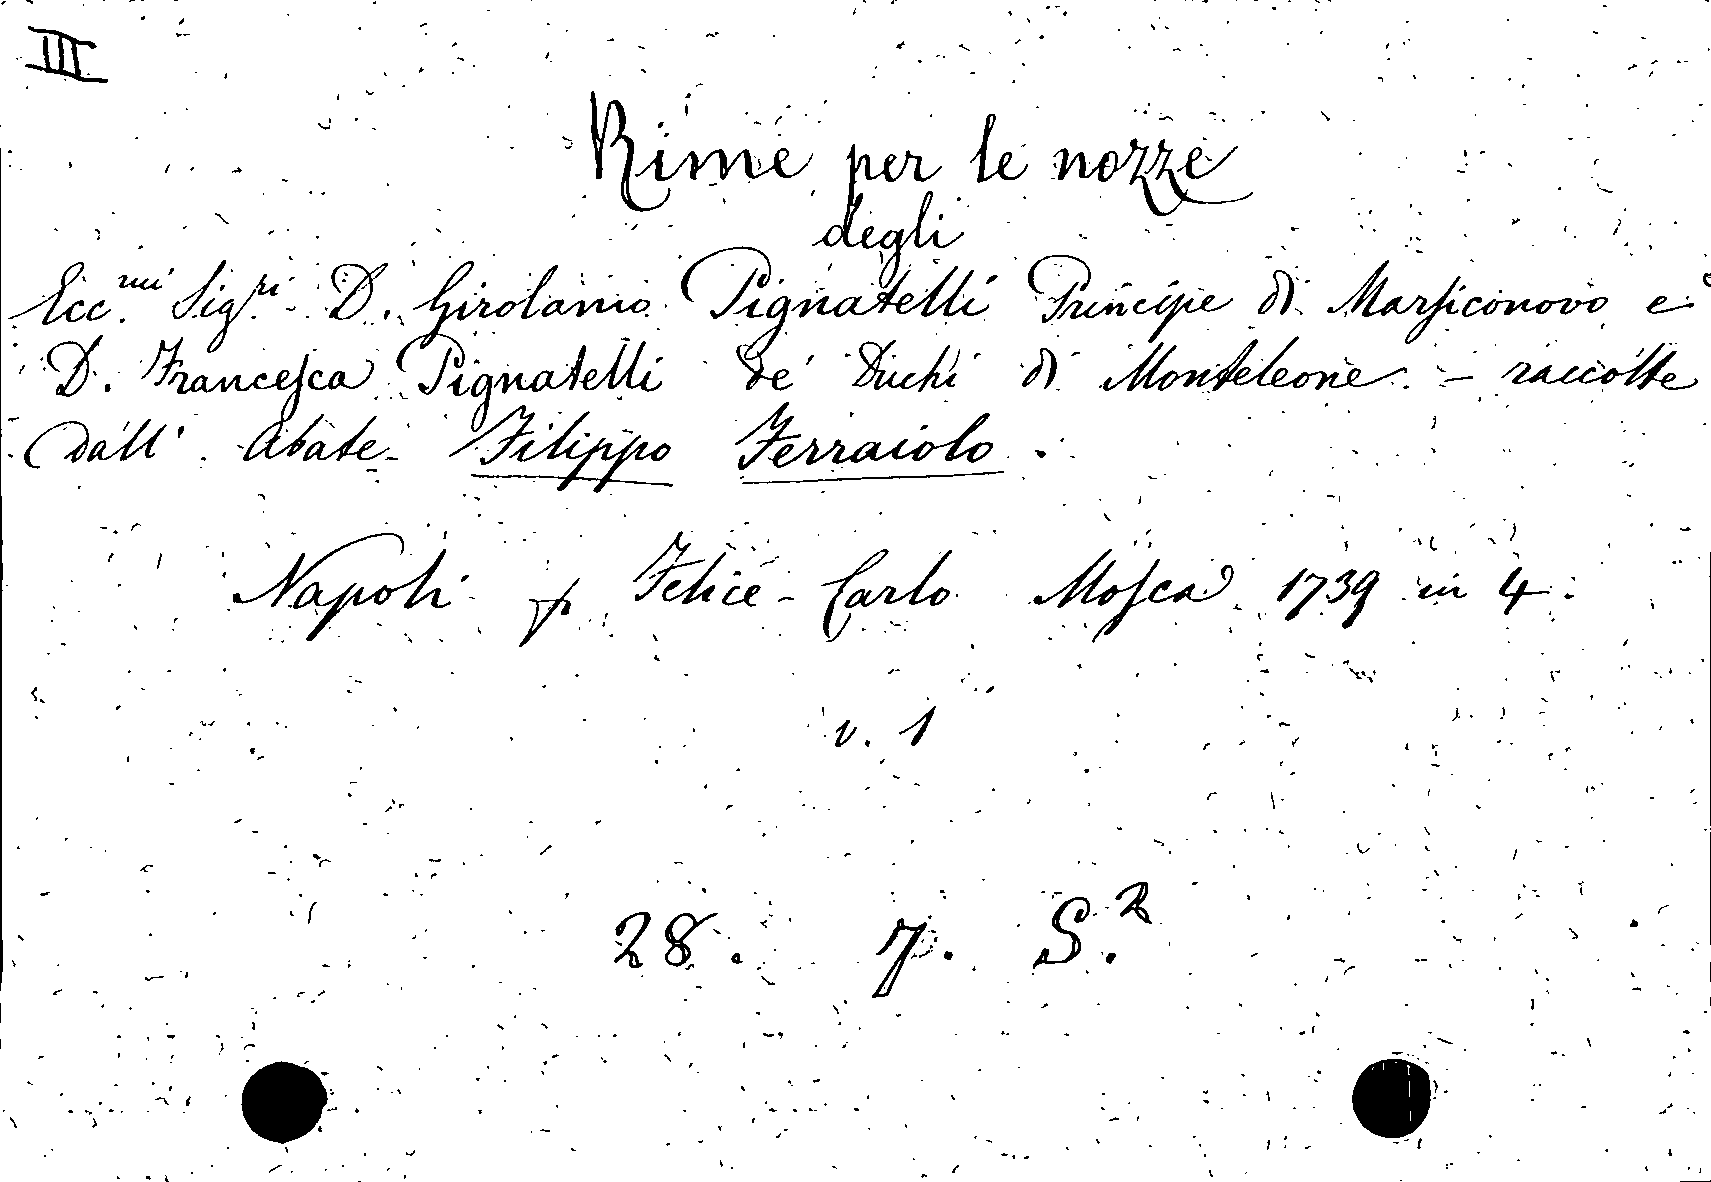 III
Rime per le nozze
degli
Ecc.mi Sig.ri D. Girolamo Pignatelli Principe di Marsiconovo e
D. Francesca Pignatelli de' Duchi di Monteleone - raccolte
dall' Abate Filippo Ferraiolo.
Napoli p Felice-Carlo Mosca 1739 in 4.
v. 1
28. 7. S.2